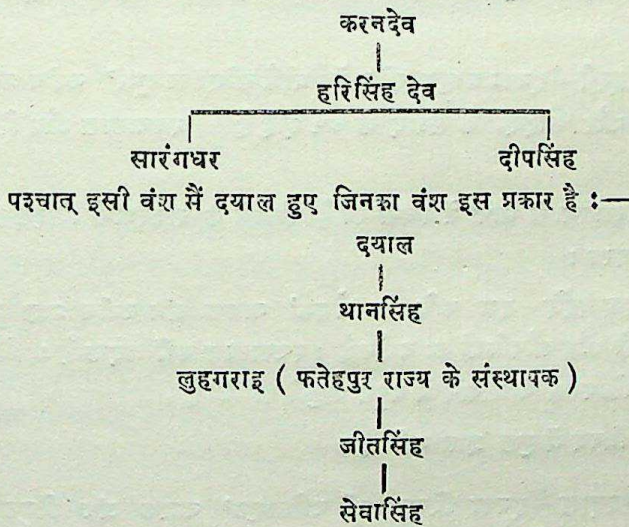 करनदेव
हरिसिंह देव
सारंगधर दीपसिंह
पश्चात् इसी वंश सैं दयाल हुए जिनका वंश इस प्रकार है :—
दयाल
थानसिंह
लुहगराइ ( फतेहपुर राज्य के संस्थापक )
जीतसिंह
सेवासिंह